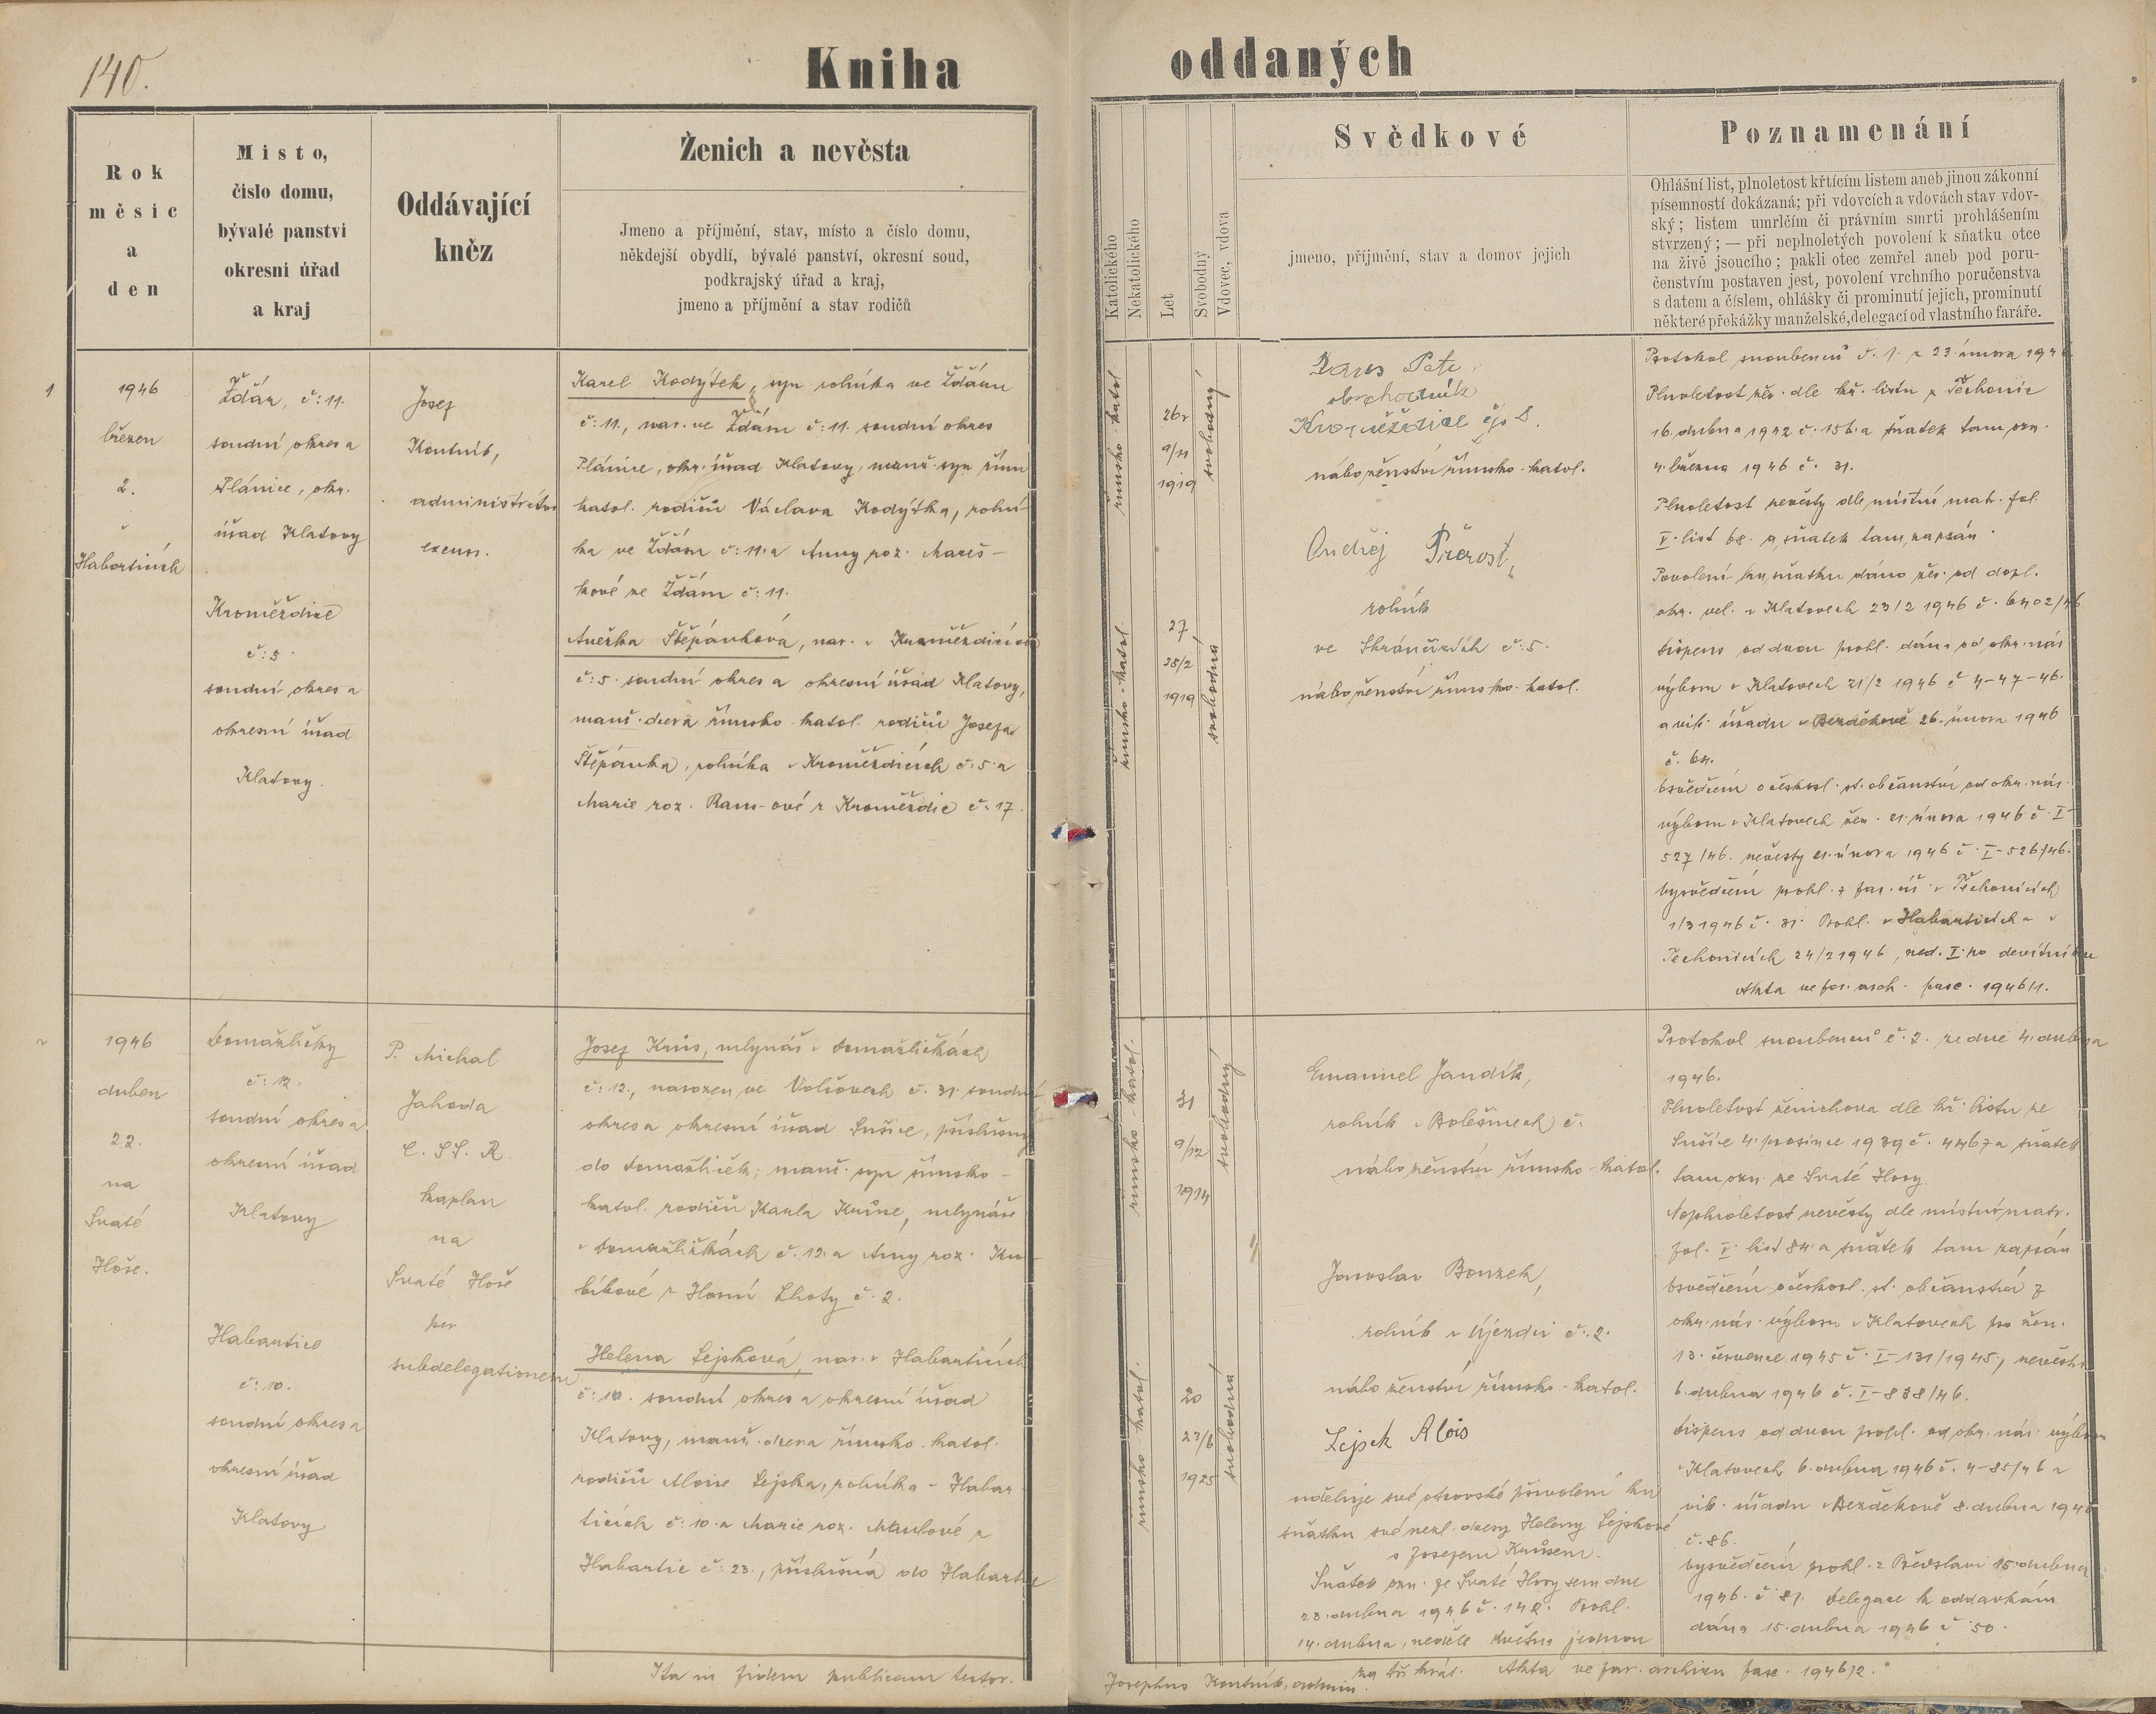 140.
Kniha oddaných
Rok
měsíc
a
den
Misto,
číslo domu,
bývalé panství
okresní úřad
a kraj
Oddávající
kněz
Ženich a nevěsta
Jmeno a příjmění, stav, místo a číslo domu,
někdejší obydlí, bývalé panství, okresní soud,
podkrajský úřad a kraj,
jmeno a příjmění a stav rodičů
Katolického
Nekatolického
Let
Svobodný
Vdovec, vdova
Svědkové
jmeno, příjmění, stav a domov jejich
Poznamenání
Ohlášní list, plnoletost křtícím listem aneb jinou zákonní
písemností dokázaná; při vdovcích a vdovách stav vdov-
ský; listem umrlčím či právním smrti prohlášením
stvrzený; — při neplnoletých povolení k sňatku otce
na živě jsoucího; pakli otec zemřel aneb pod poru-
čenstvím postaven jest, povolení vrchního poručenstva
s datem a číslem, ohlášky či prominutí jejich, prominutí
některé překážky manželské, delegací od vlastního faráře.
1
1946
březen
2.
v
Habarticích
Žďár, č: 11.
soudní okres a
Plánice, okr.
úřad Klatovy
Kroměždice
č: 5.
soudní okres a
okresní úřad
Klatovy.
Josef
Koutník,
administrátor
excurr.
Karel Kodýtek, syn rolníka ve Žďáru
č: 11., nar. ve Žďáru č: 11. soudní okres
Plánice, okr. úřad Klatovy, manž. syn řím
katol. rodičů Václava Kodýtka, rolní-
ka ve Žďáru č: 11. a Anny roz. Mareš-
kové ze Žďáru č: 11.
Anežka Štěpánková, nar. v Kroměždicích
č: 5. soudní okres a okresní úřad Klatovy,
manž. dcera římsko-katol. rodičů Josefa
Štěpánka, rolníka v Kroměždicích č: 5. a
Marie roz. Raus-ové z Kroměždic č: 17.
římsko-katol
26r
9/11
1919
svobodný
římsko-katol.
27
28/2
1919
svobodná
obchodník
Kroměždice čp 8.
náboženství římsko-katol.
Ondřej Přerost,
rolník
č: 5.
náboženství římsko-katol.
Protokol snoubenců č. 1. z 23. února 1946
Plnoletost žen. dle kř. listu z Těchonic
16. dubna 1942 č. 156. a sňatek tam ozn.
4. března 1946 č. 31.
Plnoletost nevěsty dle místní matr. fol.
V. list 68. a sňatek tam zapsán.
Povolení ku sňatku dáno žen. od dopl.
okr. vel. v Klatovech 23/2 1946 č. 6402/46
Dispens od dvou prohl. dána od okr. nás
výboru v Klatovech 21/2 1946 č 4-47-46.
a vik. úřadu v Bezděkově 26. února 1946
č. 64.
Osvědčení o českosl. st. občanství od okr. nár.
výboru v Klatovech žen. 21. února 1946 č. I-
527/46. nevěsty 21. února 1946 č. I-526/46.
Vysvědčení prohl. z far. úř. v Těchonicích
1/3 1946 č. 31. Prohl. v Habarticích a v
Těchonicích 24/2 1946, ned. I. po devítníku
Akta ve far. arch. fasc. 1946/1.
2
1946
duben
22.
na
Svaté
Hoře.
Domažličky
č: 12.
soudní okres a
okresní úřad
Klatovy
Habartice
č: 10.
soudní okres a
okresní úřad
Klatovy
P. Michal
Jahoda
C. SS. R.
kaplan
na
Svaté Hoře
per
subdelegationem
Josef Krůs, mlynář v Domažličkách
č: 12., narozen ve Volšovech č. 31. soudní
okres a okresní úřad Sušice, příslušný
do Domažliček; manž. syn římsko-
katol. rodičů Karla Krůse, mlynáře
v Domažličkách č. 12. a Anny roz. Ku-
bíkové z Horní Lhoty č. 2.
Helena Lejsková, nar. v Habarticích
č: 10. soudní okres a okresní úřad
Klatovy, manž. dcera římsko katol.
rodičů Aloise Lejska, rolníka v Habar-
ticích č: 10. a Marie roz. Maulové z
Habartic č: 23., příslušná do Habartic
římsko katol.
31
9/12
1914
svobodný
římsko katol.
20
23/6
1925
svobodná
Emanuel Jandík,
rolník v Bolešinech č.
náboženství římsko-katol.
Jaroslav Bouzek,
rolník v Újezdci č: 2.
náboženství římsko-katol.
Lejsek Alois
uděluje své otcovské přivolení ku
sňatku své nezl. dcery Heleny Lejskové
s Josefem Krůsem.
Sňatek ozn. ze Svaté Hory sem dne
23. dubna 1946 č. 142. Prohl.
14. dubna, neděle Květná jednou
za tři krát. Akta ve far. archivu fasc. 1946/2.
Protokol snoubenců č. 2. ze dne 4. dubna
1946.
Plnoletost ženichova dle kř. listu ze
Sušice 4. prosince 1939 č. 4467 a sňatek
tam ozn. ze Svaté Hory
Neplnoletost nevěsty dle místní matr.
fol. V. list 84. a sňatek tam zapsán
Osvědčení o českosl. st. občanství z
okr. nás. výboru v Klatovech pro žen.
13. července 1945 č. I-131/1945, nevěstu
6. dubna 1946 č. I-838/46.
Dispens od dvou prohl. od okr. nás. výboru
v Klatovech 6. dubna 1946 č. 4-85/46 a
vik. úřadu v Bezděkově 8. dubna 1946
č. 86.
Vysvědčení prohl. z Předslavi 15. dubna
1946. č 81. Delegace k oddavkám
dána 15. dubna 1946 č 50.
Ita in fidem publicam testor.
Josephus Koutník, admin.